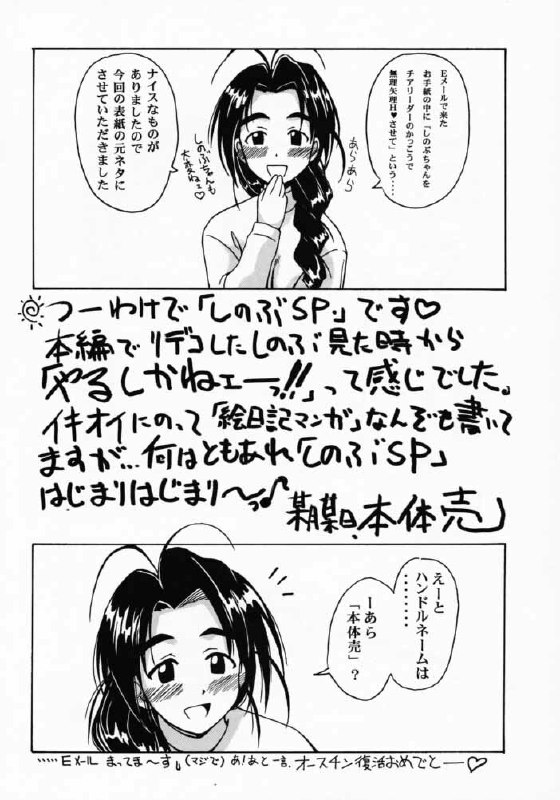 Eメールで来た
お手紙の中に「しのぶちゃんを
チアリーダーのかっこうで
無理矢理H♥させて」という‥‥
あらあら
ナイスなものが
ありましたので
今回の表紙の元ネタに
させていただきました
しのぶちゃんも
大変ねェ♡
つーわけで「しのぶSP.」です♡
本編でリデコしたしのぶ見た時から
「やるしかねェーっ!!」って感じでした。
イキオイにのって「絵日記マンガ」なんぞも書いて
ますが…何はともあれ「しのぶSP」
はじまりはじまり〜っ♪
某月某日.本体売
えーと
ハンドルネームは
‥‥‥‥
ーあら
「本体売」?
‥‥‥Eメール まってま〜す。(マジで) あ!あと一言、オースチン復活おめでとー♡